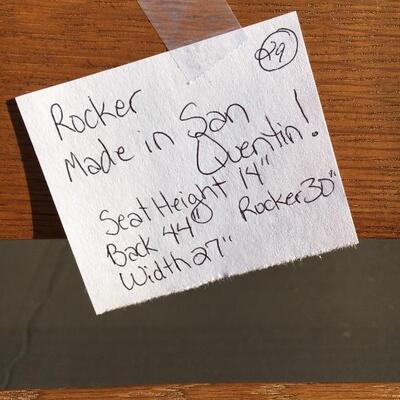 29
Rocker
Made in San
Quentin!
Seat Height 14"
Back 44" Rocker 30"
Width 27"